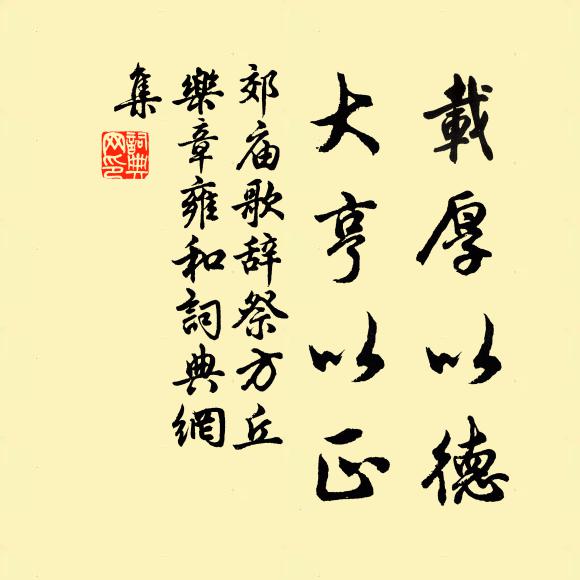 載厚以德
大亨以正
郊庙歌辞祭方丘
樂章雍和詞典網
集
詞典网印